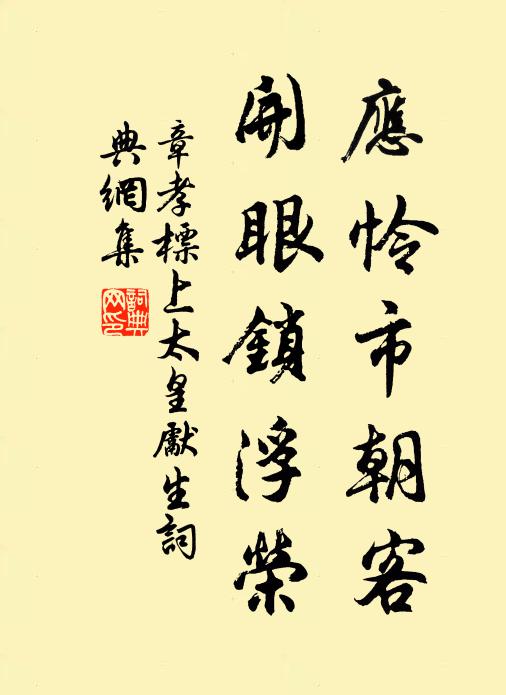 應怜市朝客
開眼鎖浮榮
章孝標上太皇獻生詞
典網集
詞典網印